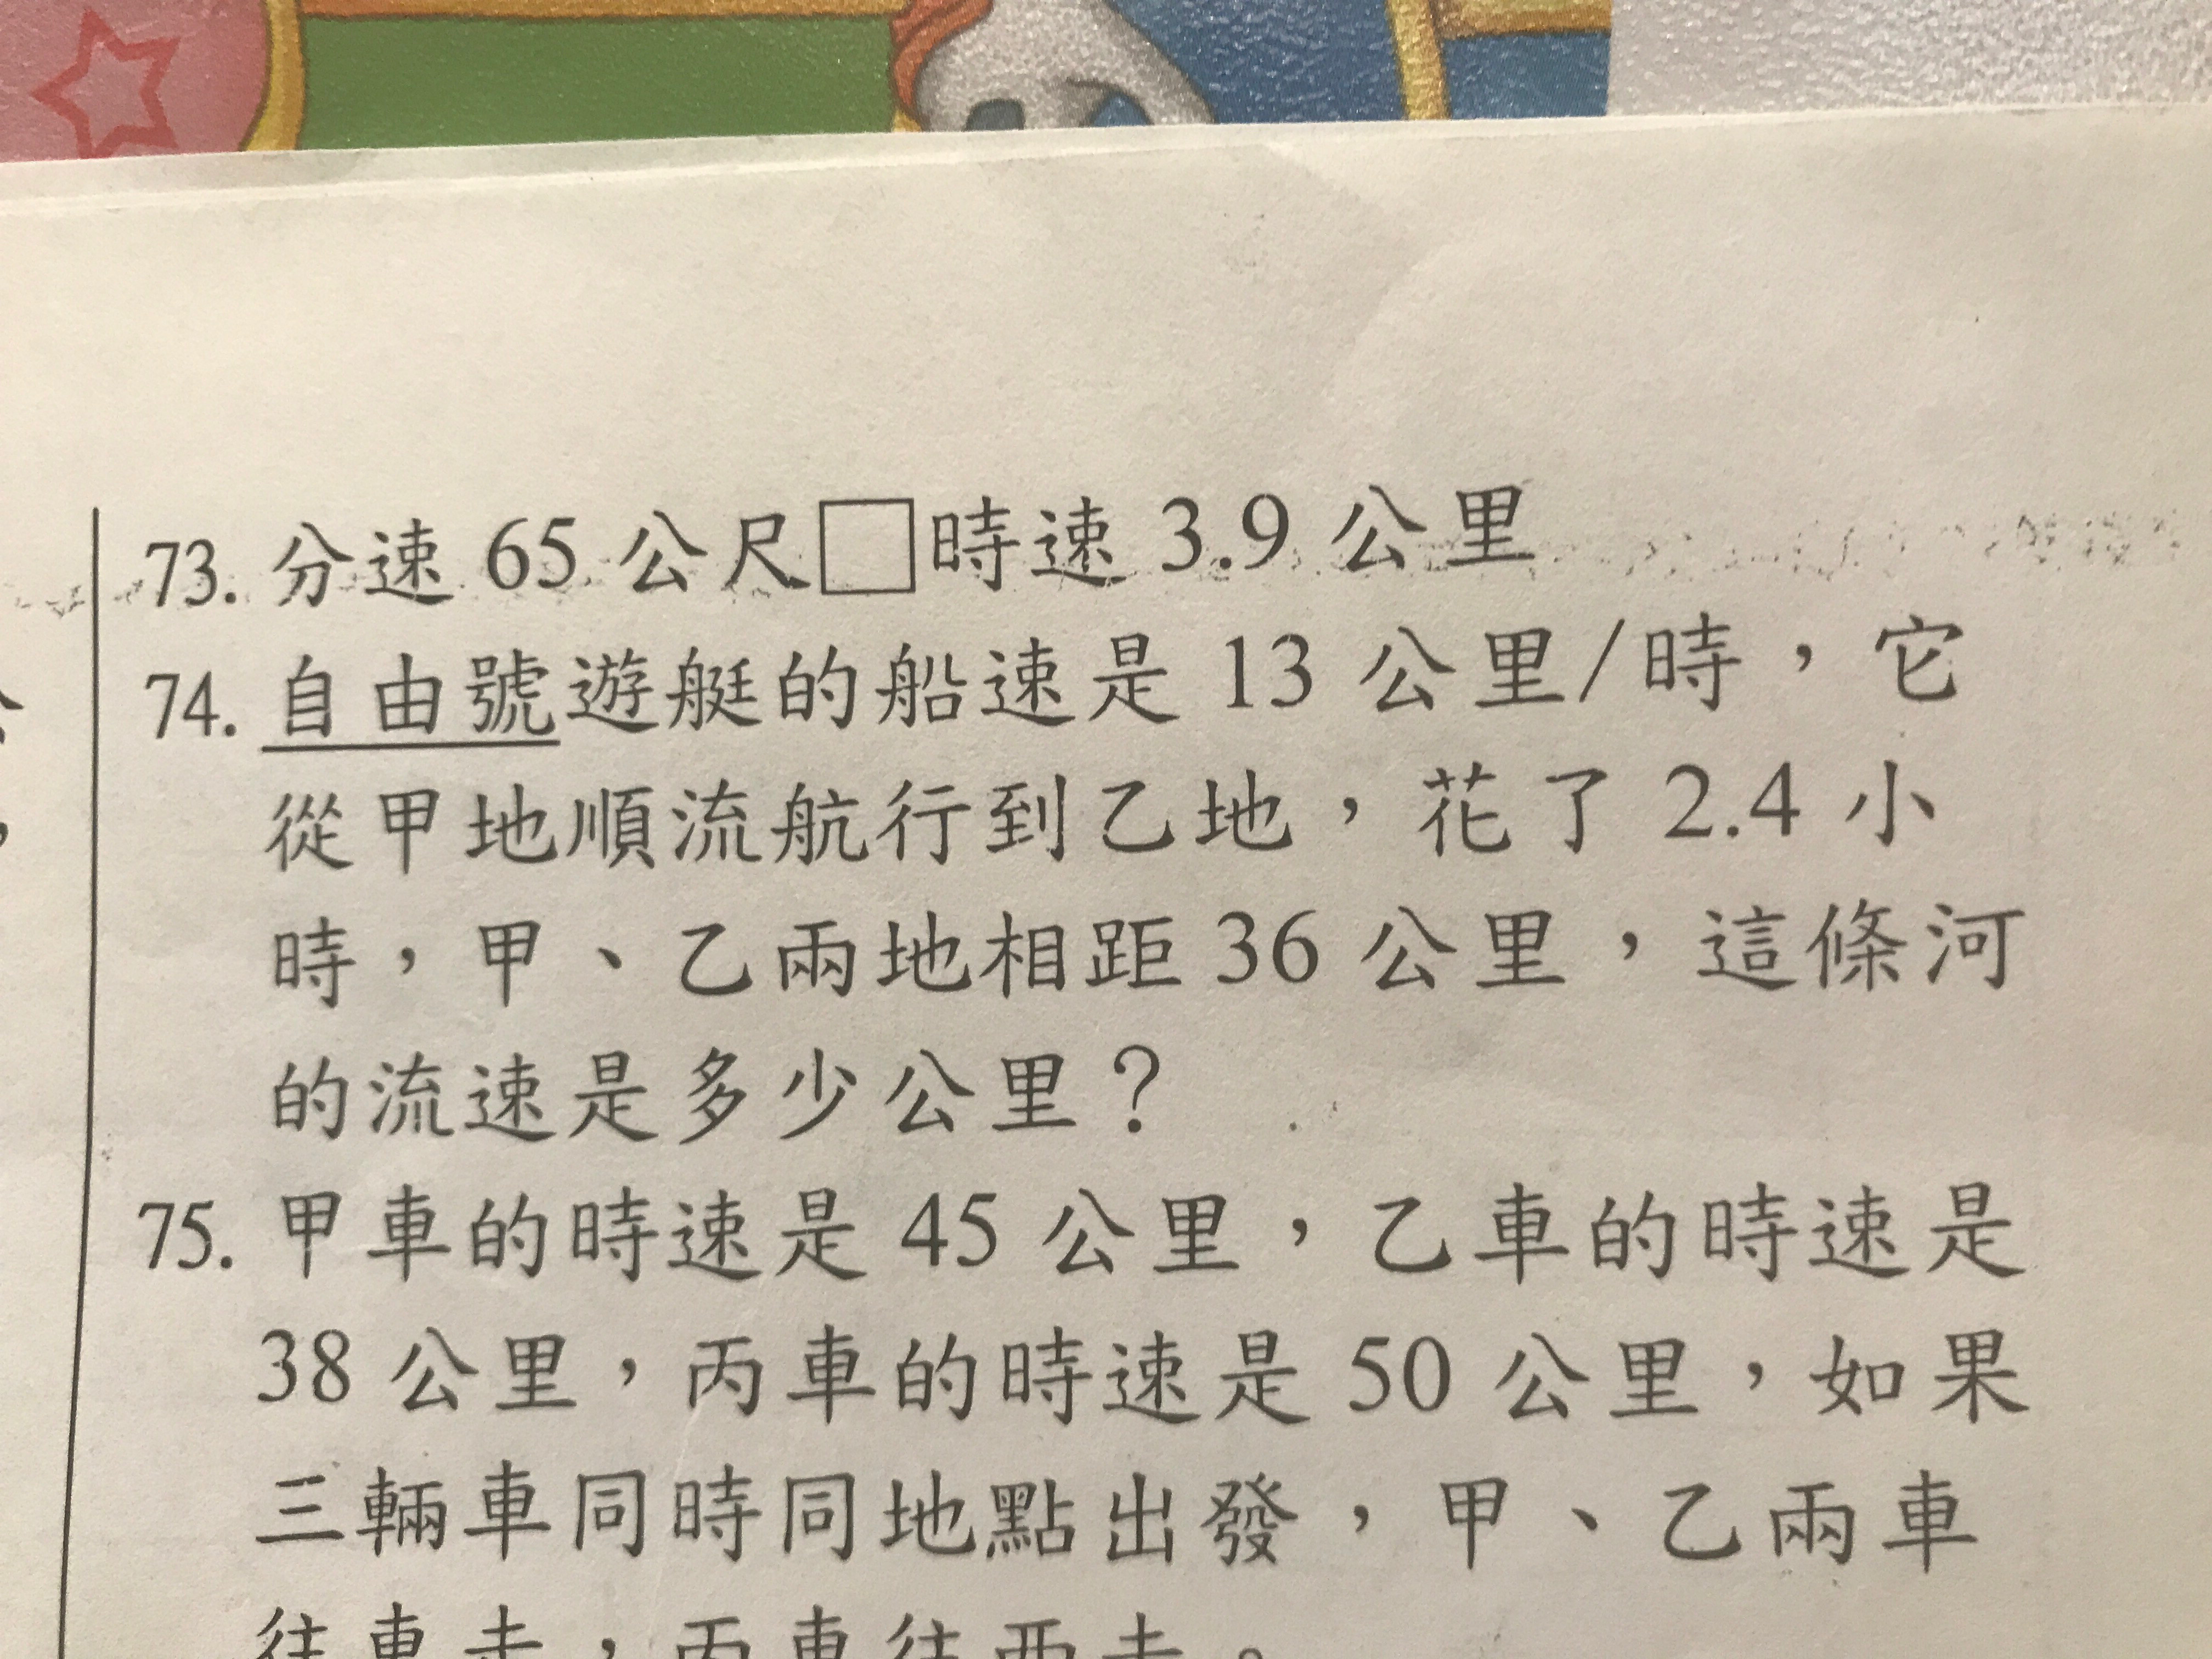 73. 分速 65 公尺□時速 3.9 公里
74. 自由號遊艇的船速是 13 公里/時，它
從甲地順流航行到乙地，花了 2.4 小
時，甲、乙兩地相距 36 公里，這條河
的流速是多少公里？
75. 甲車的時速是 45 公里，乙車的時速是
38 公里，丙車的時速是 50 公里，如果
三輛車同時同地點出發，甲、乙兩車
往東走，丙車往西走。